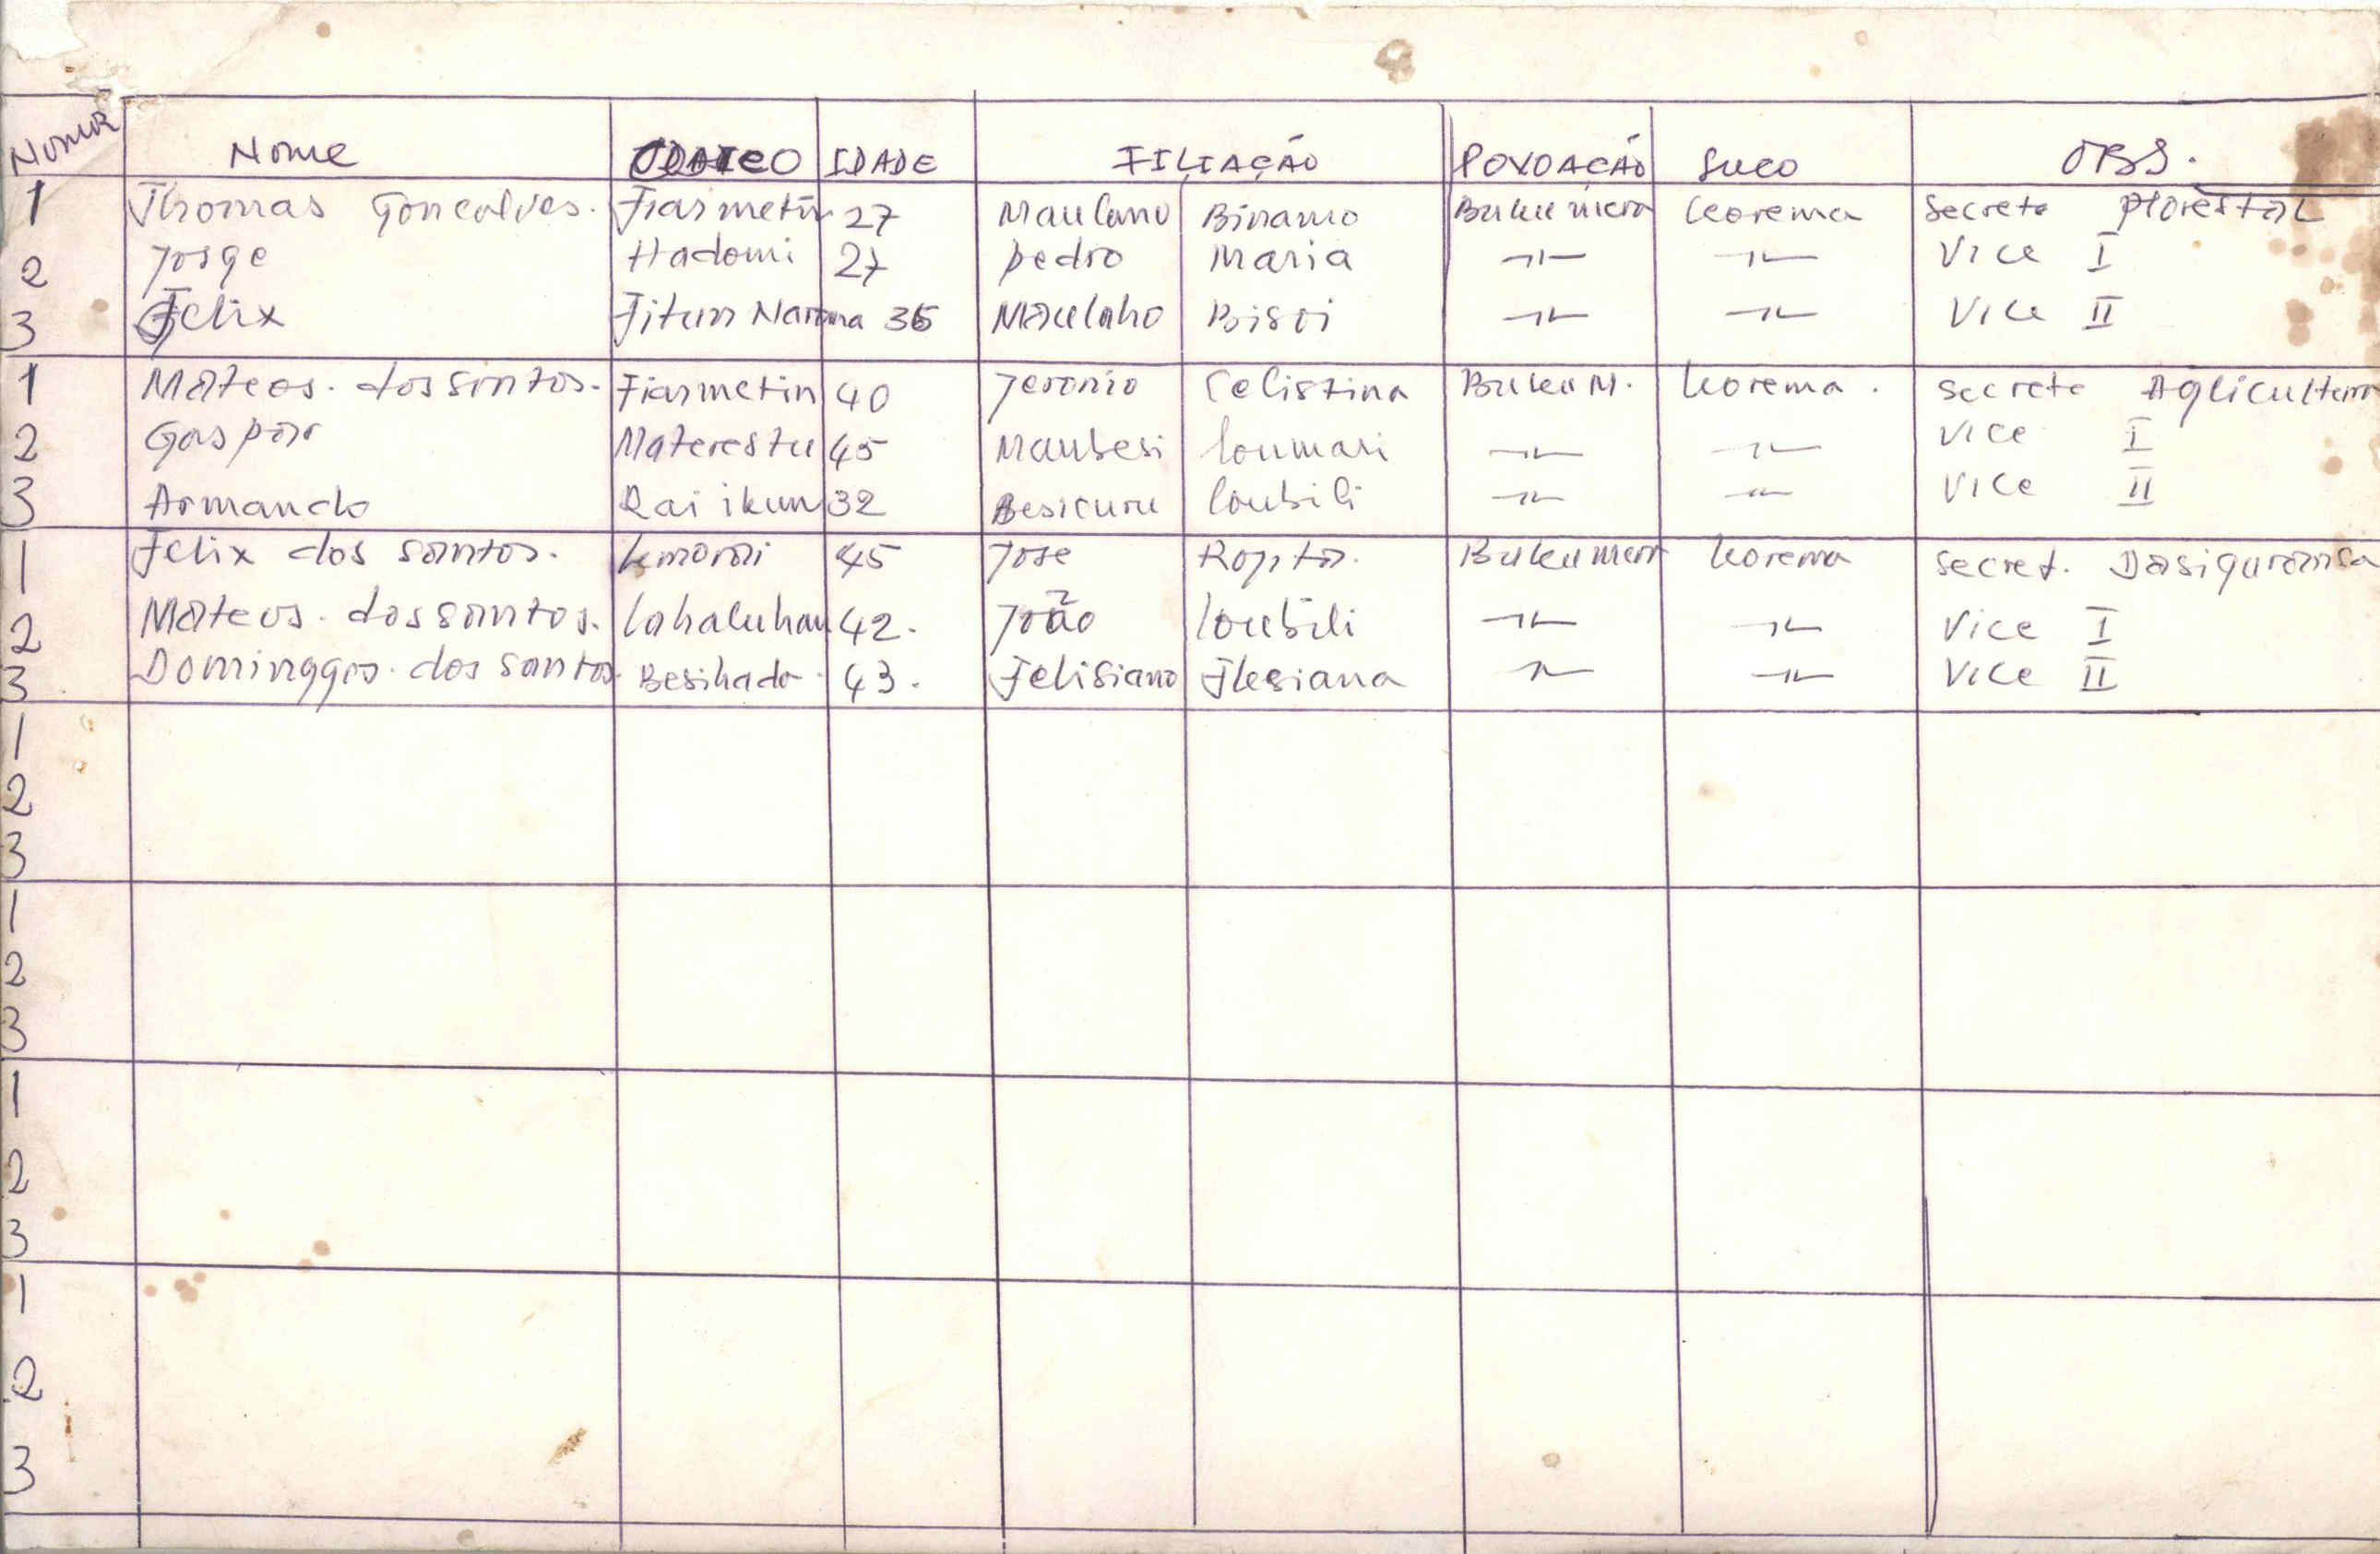 Nome IDADE FILIAÇÃO POVOAÇÃO SUCO OBS.
1 Thomas Goncalves. Fiarmetin 27 Maulano Binamo Bukumera leorema secreto Plorestal
2 Jorge Hadomi 27 pedro Maria -''- -''- Vice I
3 Felix Maulaho Bisoi -''- -''- Vice II
1 Mateos. dos santos. Fiarmetin 40 Jeronio Celistina Buku M. leorema. secreto Agliculture
2 Gaspar Materestu 45 Maubesi loumari -''- -''- Vice I
3 Armando Rai ikun 32 Besicuru loubili -''- -''- Vice II
1 Felix dos santos. 45 Jose Bukumera leorema secret. Dasiguransa
2 Mateus. dos santos. 42. João loubili -''- -''- Vice I
3 Dominggos. dos santos. Besihado. 43. Felisiano -''- -''- Vice II
1
2
3
1
2
3
1
2
3
1
2
3